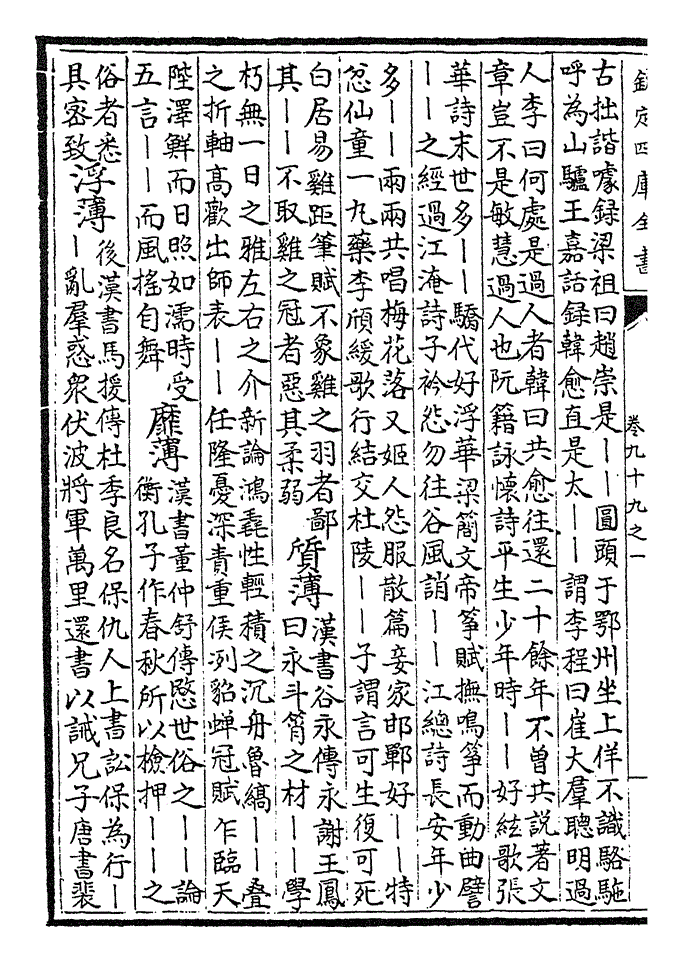 欽定四庫全書
卷九十九之一
古拙諧噱録梁祖曰趙崇是——圓頭于鄂州坐上佯不識駱駞
呼為山驢王嘉話録韓愈直是太——謂李程曰崔大羣聰明過
人李曰何處是過人者韓曰共愈往還二十餘年不曾共說著文
章豈不是敏慧過人也阮籍詠懐詩平生少年時——好絃歌張
華詩末世多——驕代好浮華梁簡文帝箏賦撫鳴箏而動曲譬
——之經過江淹詩子衿怨勿往谷風誚——江總詩長安年少
多——兩兩共唱梅花落又姬人怨服散篇妾家邯鄲好——特
忿仙童一丸藥李頎緩歌行結交杜陵——子謂言可生復可死
白居易雞距筆賦不象雞之羽者鄙
其——不取雞之冠者惡其柔弱
質薄
漢書谷永傳永謝王鳳
曰永斗筲之材——學
朽無一日之雅左右之介新論鴻毳性輕積之沉舟魯縞——叠
之折軸髙歡出師表——任隆憂深責重侯冽貂蟬冠賦乍臨天
陛澤鮮而日照如濡時受
五言——而風搖自舞
靡薄
漢書董仲舒傳愍世俗之——論
衡孔子作春秋所以檢押——之
俗者悉
具密致
浮薄
後漢書馬援傳杜季良名保仇人上書訟保為行—
—亂羣惑衆伏波將軍萬里還書以誡兄子唐書裴